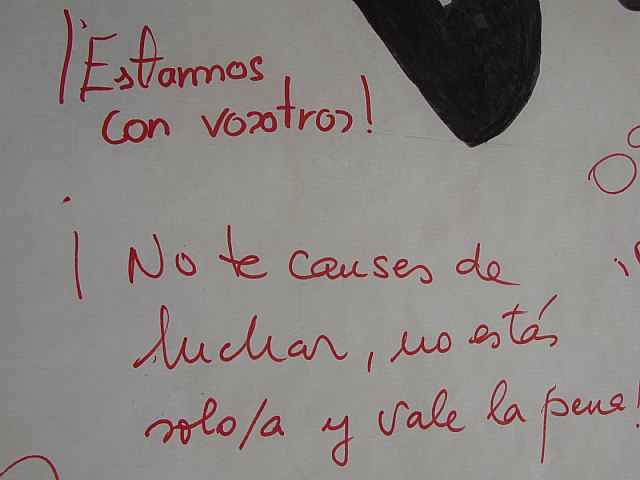 ¡Estamos
con vosotros!
¡No te canses de
luchar, no estás
solo/a y vale la pena!